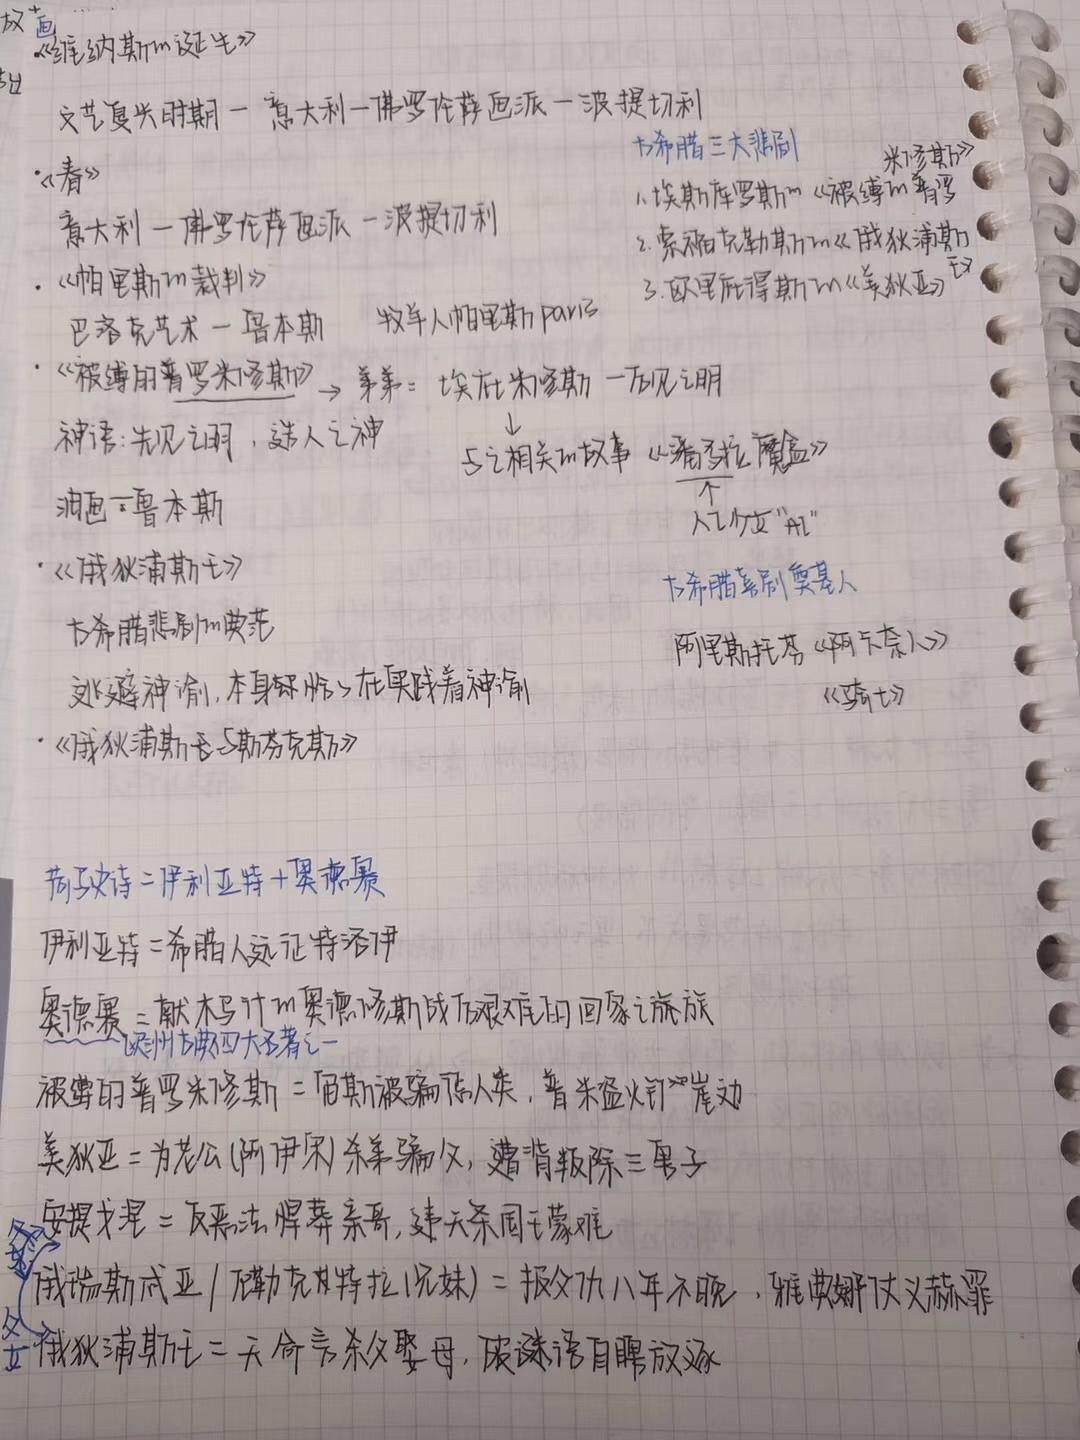 画
《维纳斯的诞生》
文艺复兴时期一意大利一佛罗伦萨画派一波提切利
·《春》
意大利一佛罗伦萨画派一波提切利
·《帕里斯的裁判》
巴洛克艺术一鲁本斯 牧羊人帕里斯paris
古希腊三大悲剧
1.埃斯库罗斯的《被缚的普罗米修斯》
2.索福克勒斯的《俄狄浦斯王》
3.欧里庇得斯的《美狄亚》
·《被缚的普罗米修斯》→弟弟=埃庇米修斯一后见之明
神话:先见之明,造人之神
↓
与之相关的故事《潘多拉魔盒》
↑
人工少女"AI"
油画=鲁本斯
·《俄狄浦斯王》
古希腊悲剧的典范
逃避神谕,本身却恰恰在实践着神谕
·《俄狄浦斯王与斯芬克斯》
古希腊喜剧奠基人
阿里斯托芬《阿卡奈人》
《骑士》
荷马史诗=伊利亚特+奥德赛
伊利亚特=希腊人远征特洛伊
奥德赛=献木马计的奥德修斯战后艰难的回家之旅族
欧洲古典四大名著之一
被缚的普罗米修斯=宙斯被骗恨人类,普米盗火钉崖边
美狄亚=为老公(阿伊宋)杀弟骗父,遭背叛除三男子
安提戈涅=反恶法悍葬亲哥,违天条国王蒙难
俄瑞斯忒亚/厄勒克拉特拉(兄妹)=报父仇八年不晚,雅典娜仗义赫罪
父女
俄狄浦斯王=天命言杀父娶母,破谜语自瞎放逐